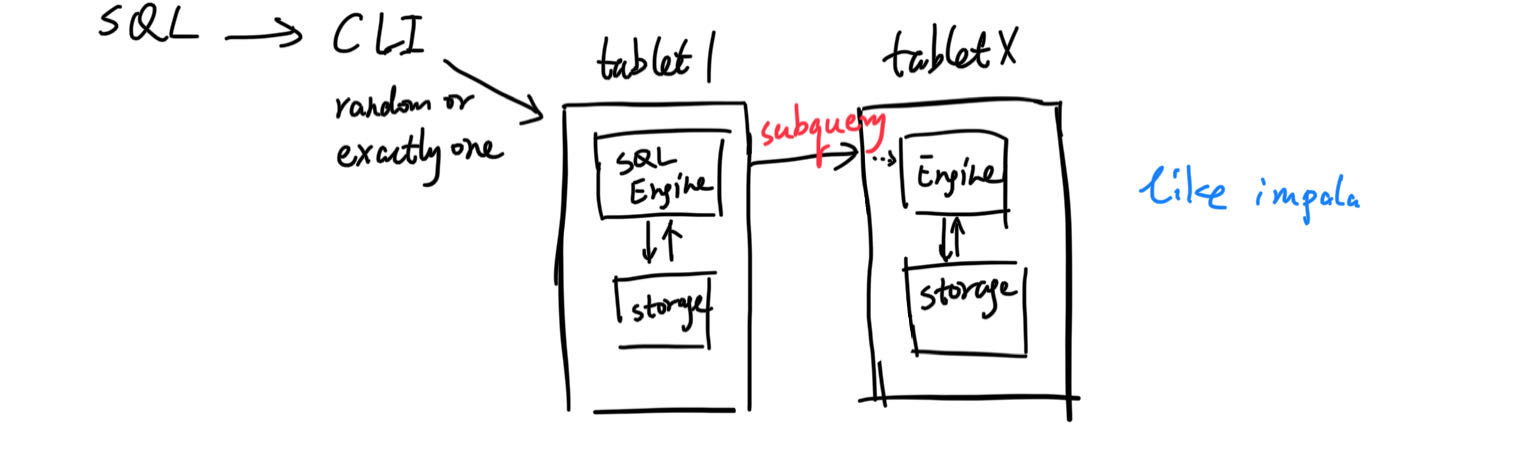 SQL → CLI
random or
exactly one
tablet 1
SQL
Engine
storage
subquery
tablet X
Engine
storage
like impala